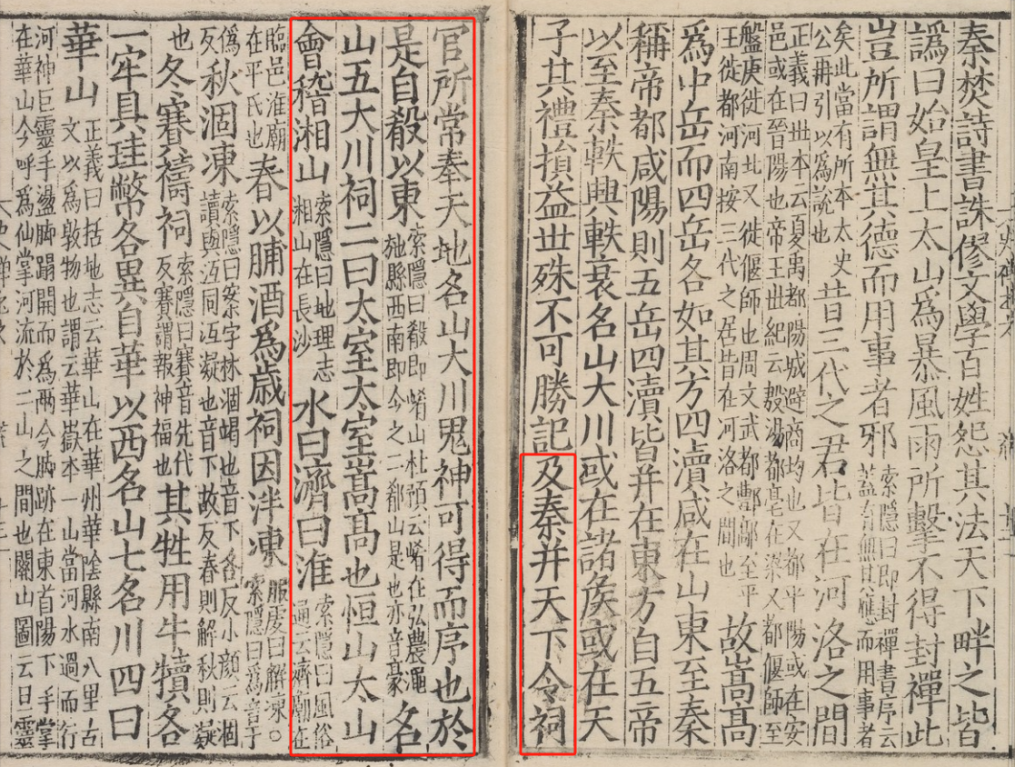 秦焚詩書誅僇文學百姓怨其法天下畔之皆
譌曰始皇上太山爲暴風雨所擊不得封禪此
豈所謂無其德而用事者邪索隱曰即封禪書序云蓋有無其應而用事者
矣此當有所本太史公再引以爲說也昔三代之君皆在河洛之間
正義曰世本云夏禹都陽城避商均也又都平陽或在安邑或在晉陽也帝王世紀云殷湯都亳在梁又都偃師至
盤庚徙河北又徙偃師也周文武都酆鄗至平王徙都河南按三代之居皆在河洛之間也故嵩高
爲中岳而四岳各如其方四瀆咸在山東至秦
稱帝都咸陽則五岳四瀆皆并在東方自五帝
以至秦軼興軼衰名山大川或在諸侯或在天
子其禮損益世殊不可勝記及秦并天下令祠
官所常奉天地名山大川鬼神可得而序也於
是自殽以東索隱曰殽即崤山杜預云崤在弘農澠池縣西南即今之二殽山是也亦音豪名
山五大川祠二曰太室太室嵩高也恒山太山
會稽湘山索隱曰地理志湘山在長沙水曰濟曰淮索隱曰風俗通云濟廟在
臨邑淮廟在平氏也春以脯酒爲歲祠因泮凍服虔曰解凍。索隱曰爲音于
僞反秋涸凍索隱曰案字林涸竭也音下各反小顏云涸讀與沍同沍凝也音下故反春則解秋則凝
也冬賽禱祠索隱曰賽音先代反賽謂報神福也其牲用牛犢各
一牢具珪幣各異自華以西名山七名川四曰
華山正義曰括地志云華山在華州華陰縣南八里古文以爲敦物也謂云華嶽本一山當河水過而行
河神巨靈手盪脚蹋開而爲兩今脚跡在東首陽下手掌在華山今呼爲仙掌河流於二山之間也關山圖云巨靈